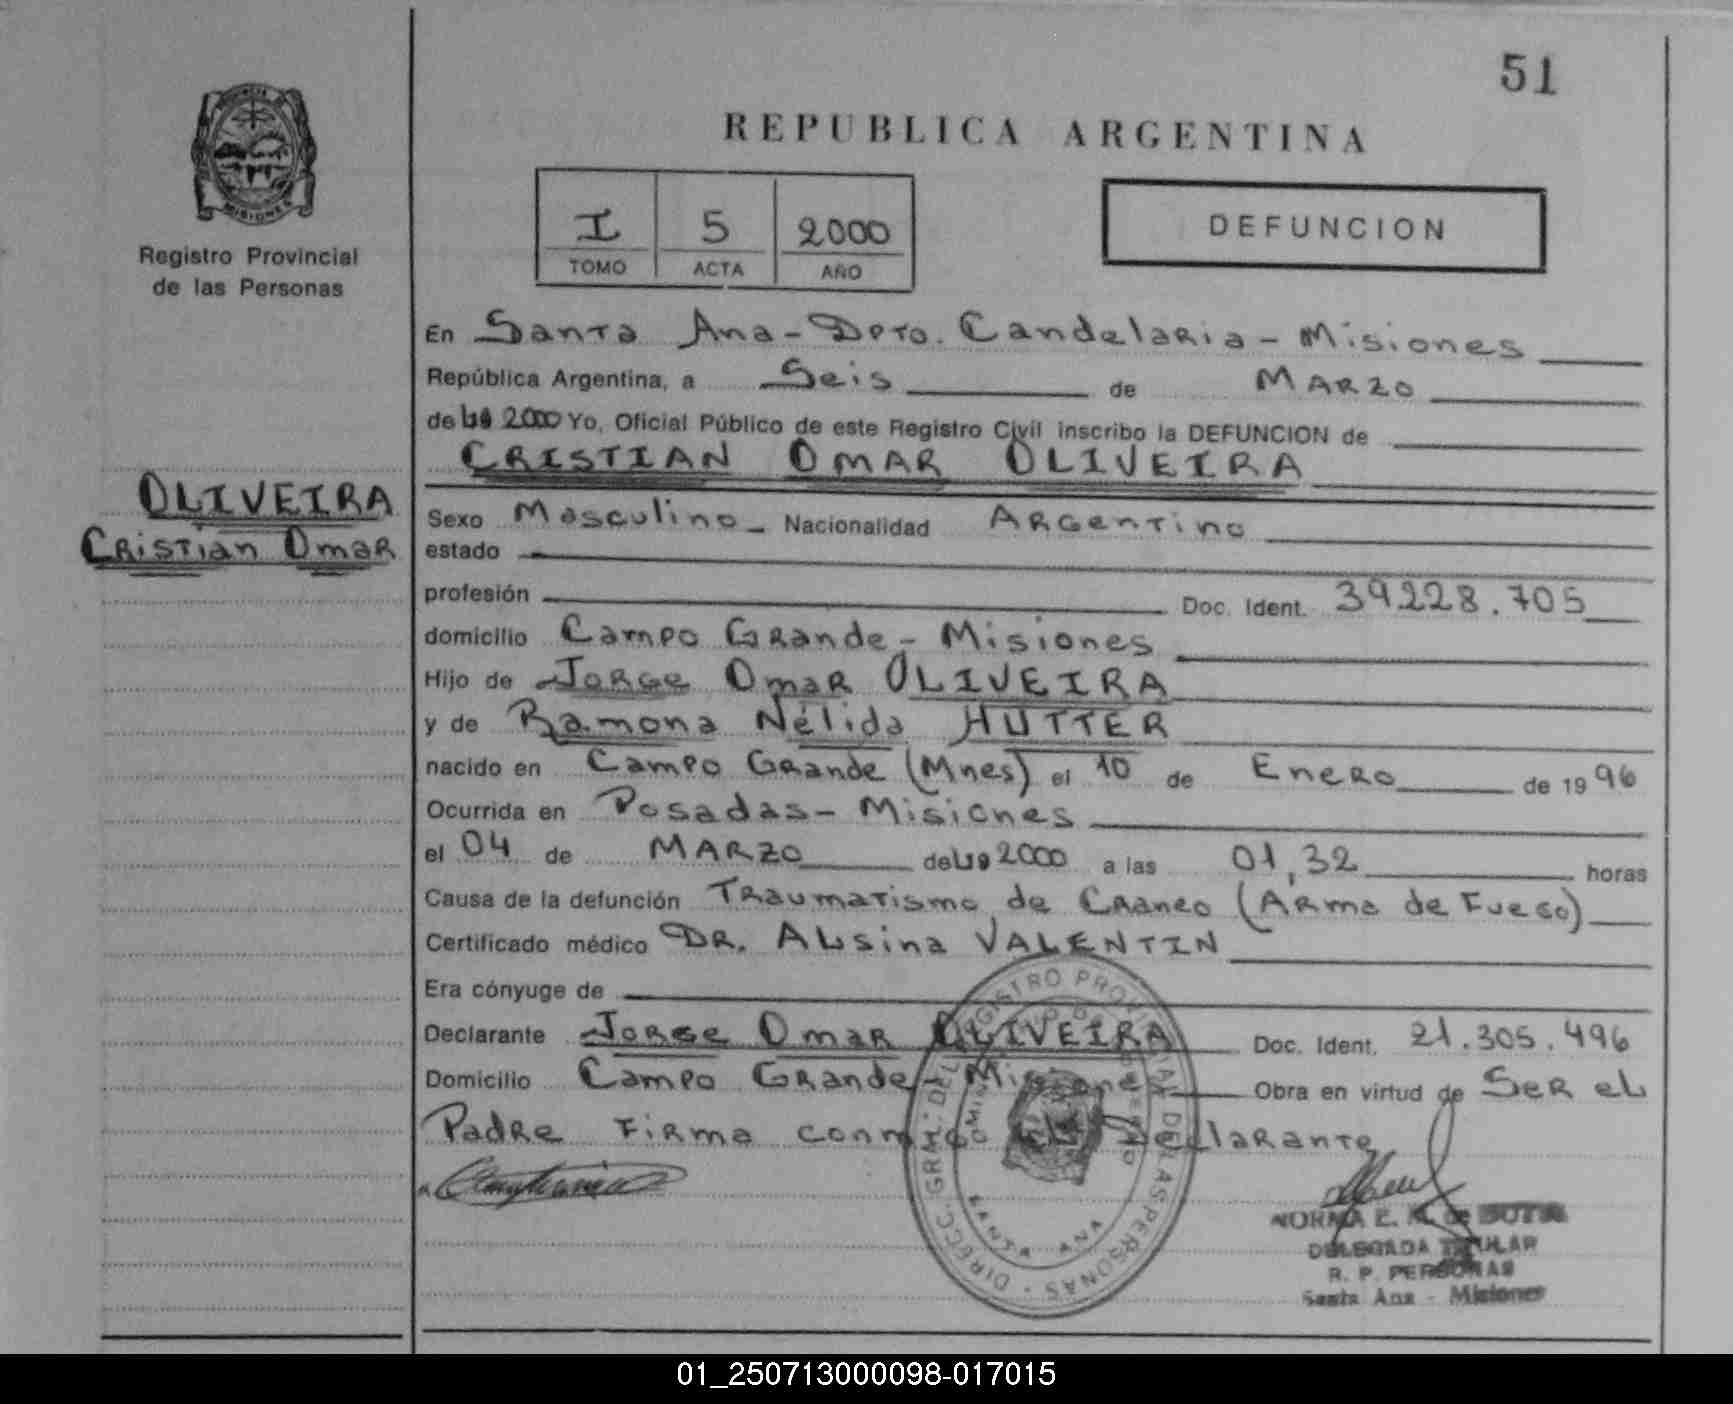 51
REPUBLICA ARGENTINA
PROVINCIA
MISIONES
Registro Provincial
de las Personas
I 5 2000
TOMO ACTA AÑO
DEFUNCION
En Santa Ana - Dpto. Candelaria - Misiones
República Argentina, a Seis de Marzo
de 2000 Yo, Oficial Público de este Registro Civil inscribo la DEFUNCION de
CRISTIAN OMAR OLIVEIRA
OLIVEIRA
Cristian Omar
Sexo Masculino - Nacionalidad Argentino
estado
profesión Doc. Ident. 39228.705
domicilio Campo Grande - Misiones
Hijo de Jorge Omar OLIVEIRA
y de Ramona Nélida HUTTER
nacido en Campo Grande (Mnes) el 10 de Enero de 1996
Ocurrida en Posadas - Misiones
el 04 de MARZO de 2000 a las 01,32 horas
Causa de la defunción Traumatismo de Craneo (Arma de Fuego)
Certificado médico DR. Alsina VALENTIN
Era cónyuge de
Declarante Jorge Omar OLIVEIRA Doc. Ident. 21.305.496
Domicilio Campo Grande Misiones Obra en virtud de Ser el
Padre Firma conmigo el Declarante
DIRECC. GRAL. DEL REGISTRO PROVINCIAL DE LAS PERSONAS
SANTA ANA
NORMA E.
DELEGADA TITULAR
R. P. PERSONAS
Santa Ana - Misiones
01_250713000098-017015